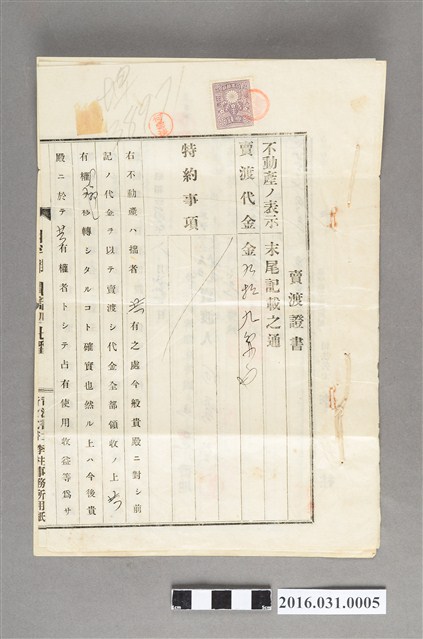 賣渡證書
不動產ノ表示 末尾記載之通
賣渡代金 金 九 也
特約事項
右不動產ハ拙者 共有之處今般貴殿ニ對シ前
記ノ代金ヲ以テ賣渡シ代金全部領收ノ上共
有權移轉シタルコト確實也然ル上ハ今後貴
殿ニ於テ共有權者トシテ占有使用收益等爲サ
事務所用紙
2016.031.0005